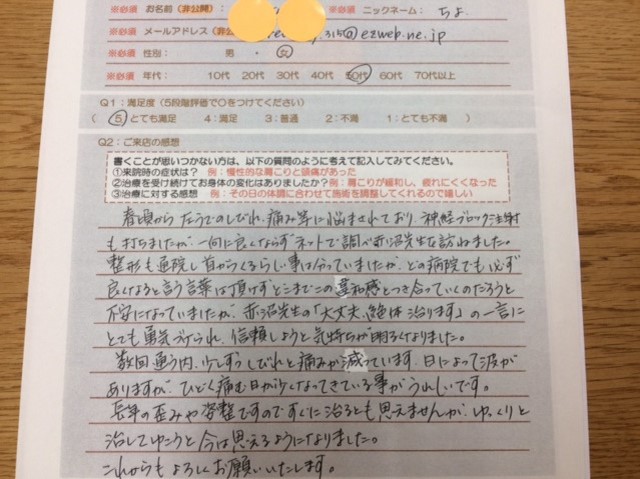 ※必須 お名前（非公開）： ※必須 ニックネーム： ちよ.
※必須 メールアドレス（非公 .315@ezweb.ne.jp
※必須 性別： 男 ・ 女
※必須 年代： 10代 20代 30代 40代 50代 60代 70代以上
Q1：満足度（5段階評価で○をつけてください）
（ 5：とても満足 4：満足 3：普通 2：不満 1：とても不満 ）
Q2：ご来店の感想
書くことが思いつかない方は、以下の質問のように考えて記入してみてください。
①来院時の症状は？ 例：慢性的な肩こりと頭痛があった
②治療を受け続けてお身体の変化はありましたか？ 例：肩こりが緩和し、疲れにくくなった
③治療に対する感想 例：その日の体調に合わせて施術を調整してくれるので嬉しい
春頃から 左うでのしびれ、痛み等に悩まされており、神経ブロック注射
も打ちましたが、一向に良くならずネットで調べ赤沼先生を訪ねました。
整形も通院し首からくるらしい事は分っていましたが、どの病院でも必ず
良くなると言う言葉は頂けず どこまでこの違和感とつき合っていくのだろうと
不安になっていましたが、赤沼先生の「大丈夫、絶体治ります」の一言に
とても勇気づけられ、信頼しようと気持ちが明るくなりました。
数回通う内、少しずつしびれと痛みが減っています。日によって波が
ありますが、ひどく痛む日が少くなってきている事がうれしいです。
長年の歪みや 姿整ですのですぐに治るとも思えませんが、ゆっくりと
治してゆこうと今は思えるようになりました。
これからもよろしくお願いいたします。